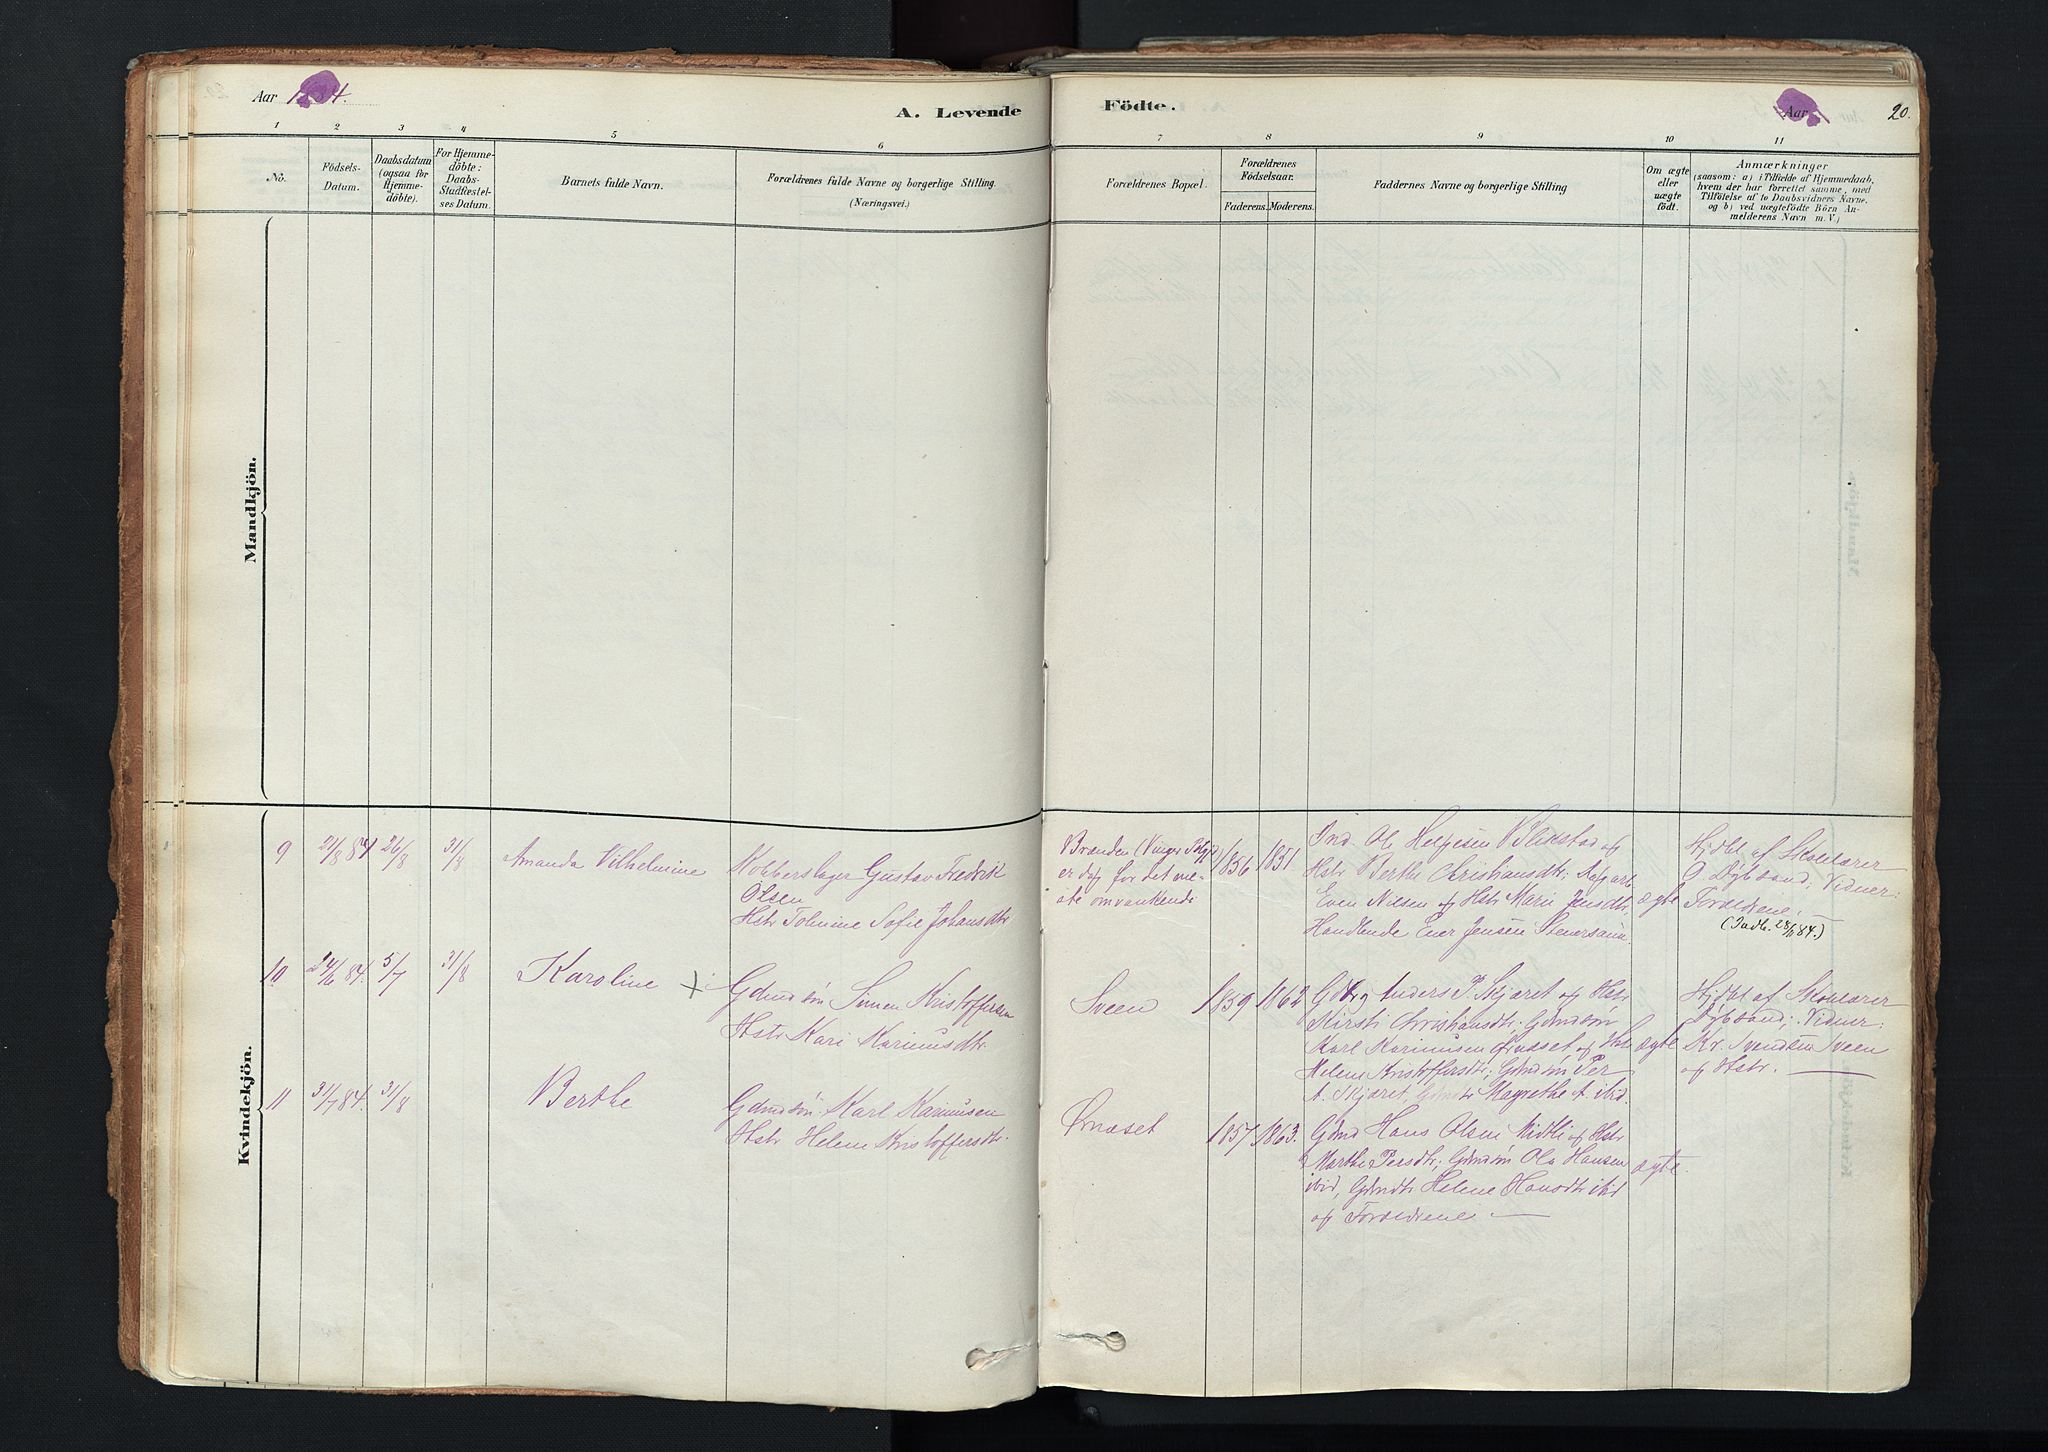 Aar 1884.
A. Levende
Födte.
Aar
20.
1 2 3 4 5 6 7 8 9 10 11
No.
Födsels-
Datum.
Daabsdatum
(ogsaa for
Hjemme-
döbte).
For Hjemme-
döbte:
Daabs-
Stadfæstel-
ses Datum.
Barnets fulde Navn.
Forældrenes fulde Navne og borgerlige Stilling.
(Næringsvei.)
Forældrenes Bopæl.
Forældrenes
Födselsaar.
Faderens. Moderens.
Faddernes Navne og borgerlige Stilling
Om ægte
eller
uægte
födt.
Anmærkninger
(saasom: a) i Tilfælde af Hjemmedaab,
hvem der har forrettet samme, med
Tilföielse af to Daabsvidners Navne,
og b) ved uægtefödte Börn An-
melderens Navn m. V.)
Mandkjön.
Kvindekjön.
9
21/8 84
26/8
31/8
Amanda Vilhelmine
Kobberslager Gustav Fredrik
Olsen
Hstr Tolmine Sofie Johansdtr
Branden (Vinger
er dog for det me-
ste omvankende
1856
1851
Ind. Ole Helgesen Blikstad og
Hstr Berthe Christiansdtr;
Even Nilsen og Hstr Marie Jensdtr,
Handlende Ener Jensen
ægte
Hjdbt af Skolelærer
O Dybsand; Vidner:
Forældrene.
(Indb. 28/11 84.)
10
24/6 84.
5/7
31/8
Karoline
Gdmdsøn Simen Kristoffersen
Hstr Kari Karinusdtr.
Sveen
1859
1862
Gdbr Anders P. Skjæret og Hstr
Kirsti Christiansdtr; Gdmdsøn
Karl Karinusen Ørnæset og Hstr
Helene Kristoffersdtr; Gdmdsøn Per
A. Skjæret, Gdmdtr Magrethe A. ibid.
ægte
Hjdbt af Skolelærer
Dybsand; Vidner:
Kr. Svendsen Sveen
og Hstr.
11
31/7 84.
31/8
Berthe
Gdmdsøn Karl Karinusen
Hstr Helene Kristoffersdtr.
Ørnæset
1857
1863.
Gdmd Hans Olsen Midtli og Hstr
Marthe Persdtr; Gdmdsøn Ole Hansen
ibid, Gdmdtr Helene Hansdtr ibid
og Forældrene
ægte.